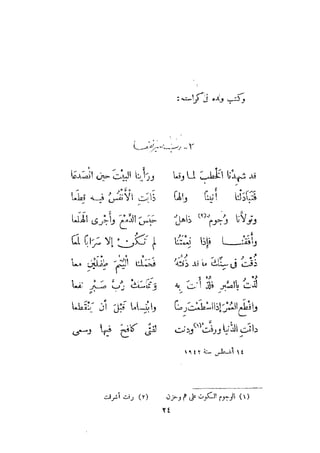 وكتب ولده في كراسته:
٢ -
قد شهدنا الخطب لما وقعا ورأينا البيت حين انصدعا
فتبادلنا أنينا والها ذابت الأنفس فيه قطعا
وتولانا وجوم (٢) ذاهل حبس الدمع وأجرى الهلعا
وأفقنا فإذا نعمتنا لم تكن إلا سرابا لمعا
ذقت في سنك ما قد ذقته فحملنا اليتم طفلين معا
لذت بالصبر فلذ أنت به وتماسك رب صبر نفعا
واقطع العمر إذا اسطعت رضا وابتساما قبل أن ينقطعا
دانت الدنيا ورفت (١) ودنت لفتى كافح فيها وسعى
١٤ أغسطس سنة ١٩٤٢
(١) الوجوم السكوت على هم وحزن (٢) رفت أشرقت
٢٤